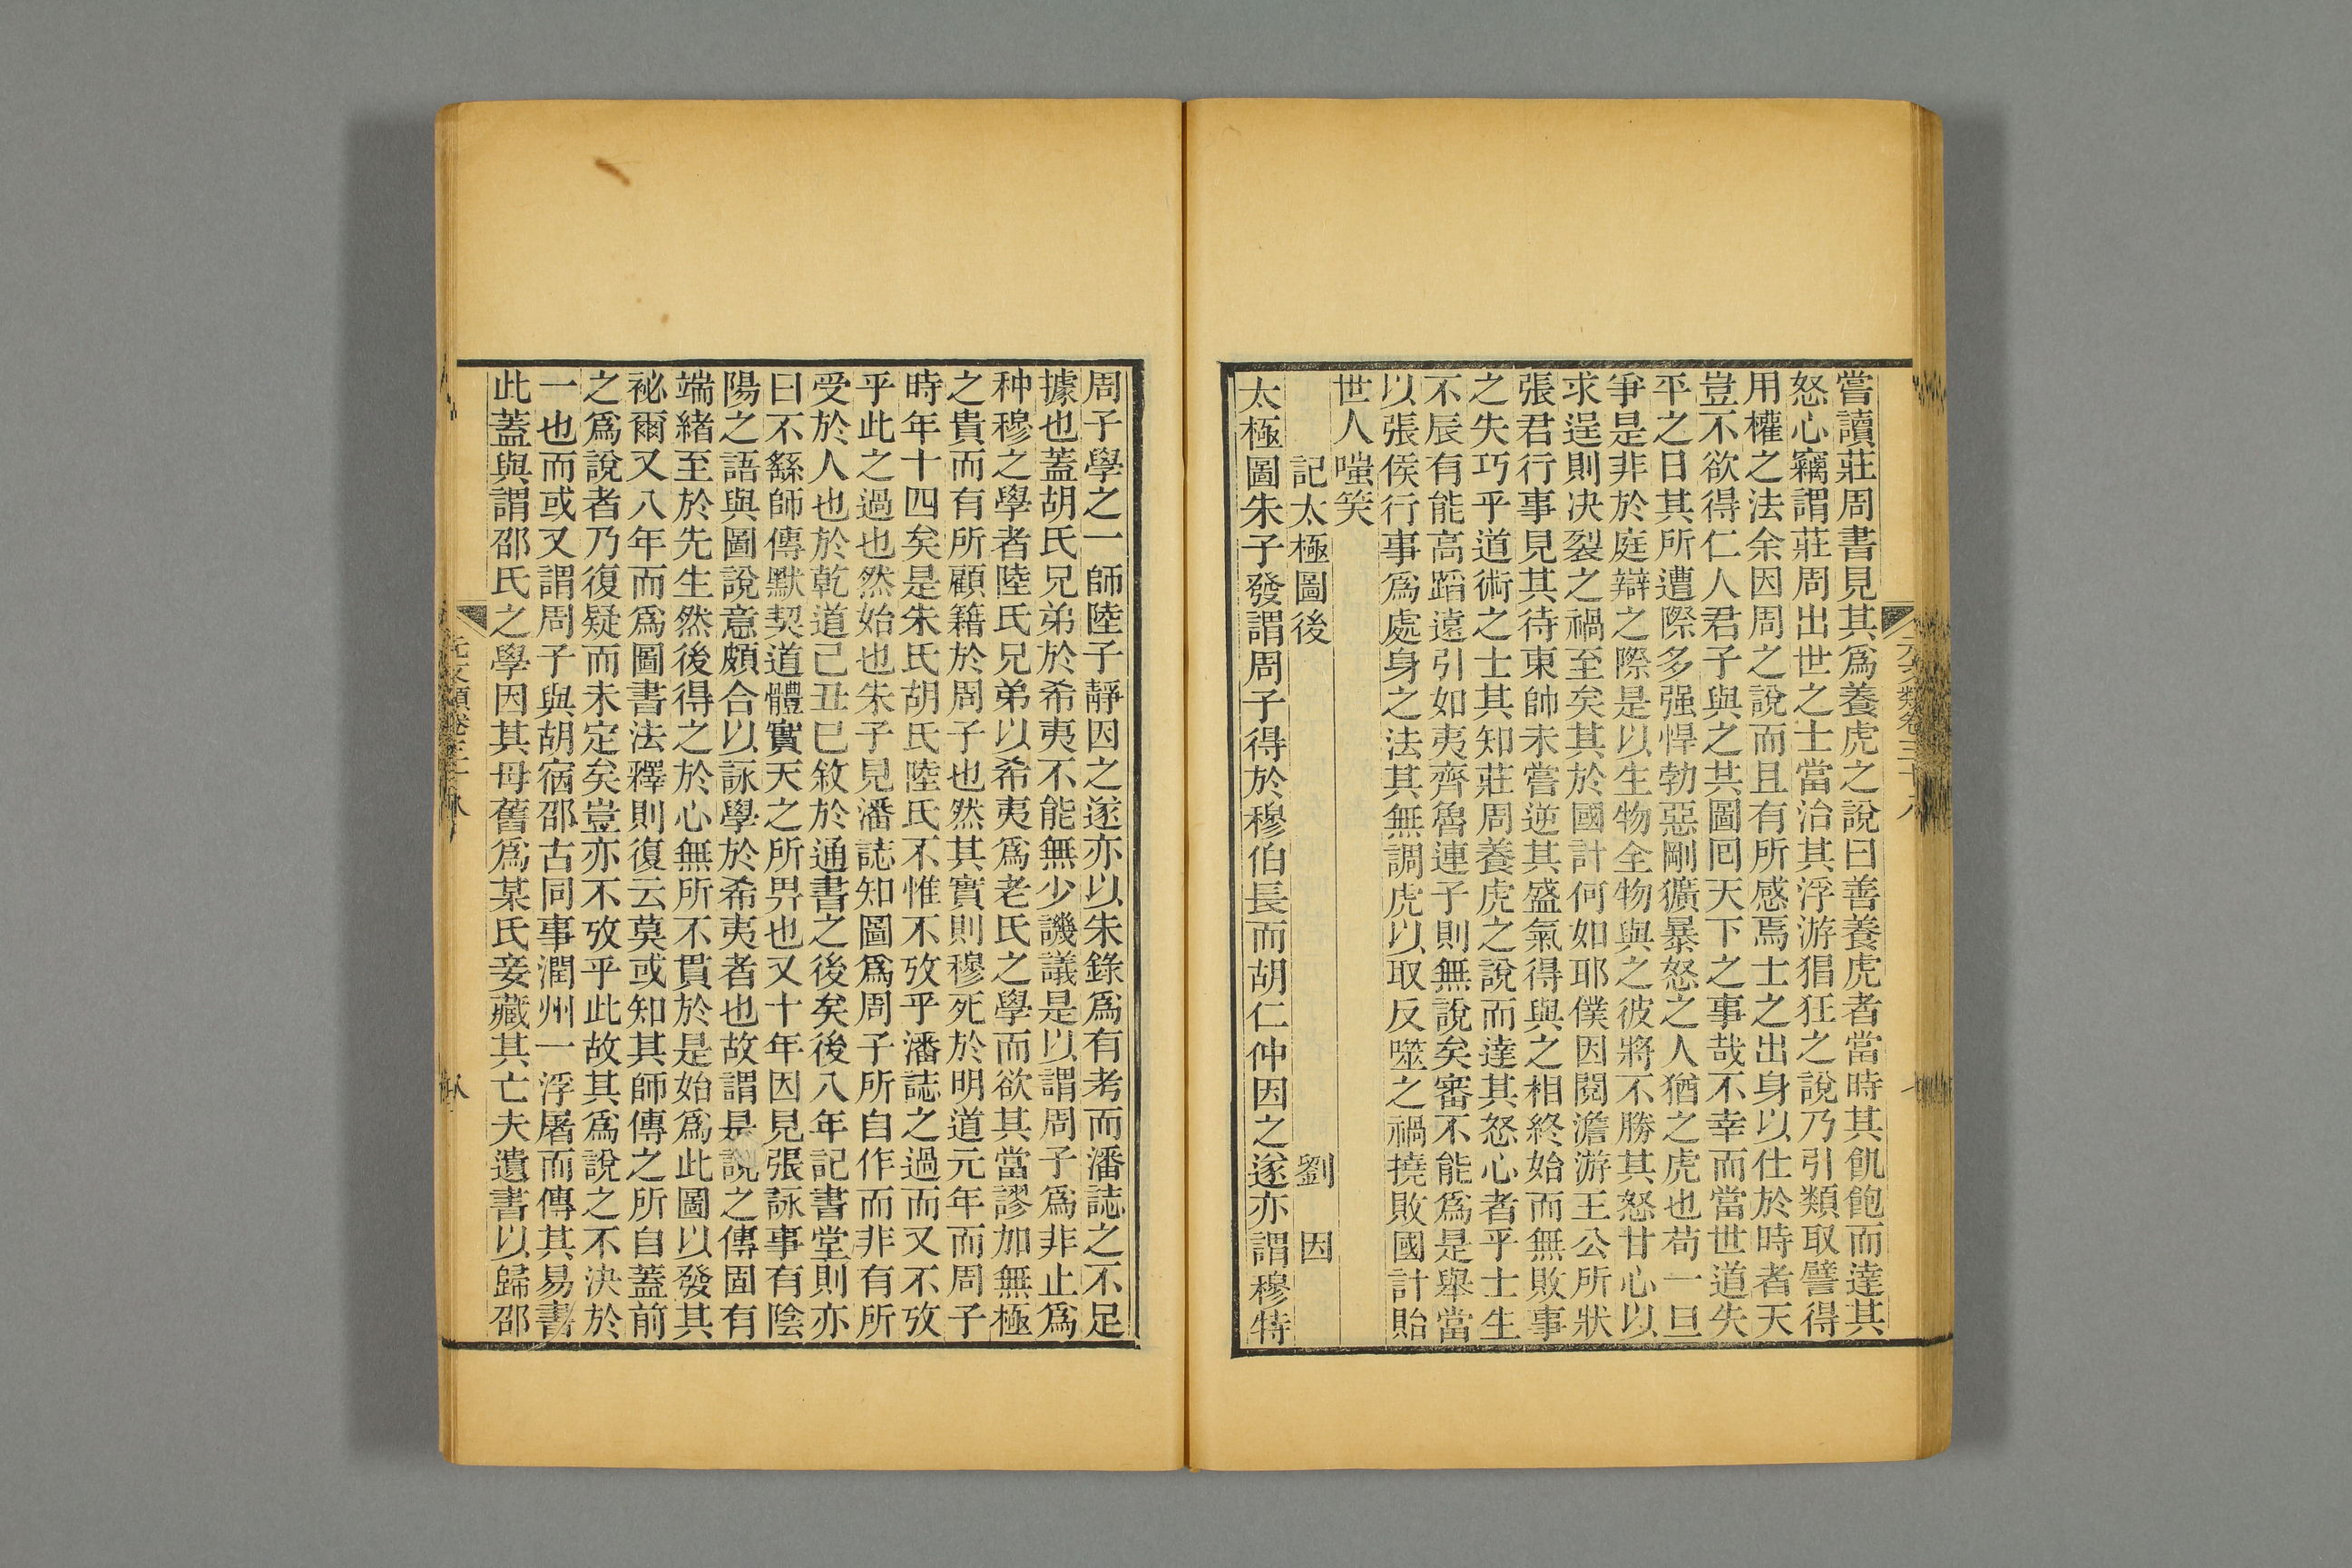 嘗讀莊周書見其爲養虎之說曰善養虎者當時其飢飽而達其
怒心竊謂莊周出世之士當治其浮游猖狂之說乃引類取譬得
用權之法余因周之說而且有所感焉士之出身以仕於時者天
豈不欲得仁人君子與之共圖囘天下之事哉不幸而當世道失
平之日其所遭際多强悍勃惡剛獷暴怒之人猶之虎也苟一旦
爭是非於庭辯之際是以生物全物與之彼將不勝其怒甘心以
求逞則决裂之禍至矣其於國計何如耶僕因閱澹游王公所狀
張君行事見其待東帥未嘗逆其盛氣得與之相終始而無敗事
之失巧乎道術之士其知莊周養虎之說而達其怒心者乎士生
不辰有能高蹈遠引如夷齊魯連子則無說矣審不能爲是舉當
以張侯行事爲處身之法其無調虎以取反噬之禍撓敗國計貽
世人嗤笑
記太極圖後 劉因
太極圖朱子發謂周子得於穆伯長而胡仁仲因之遂亦謂穆特
周子學之一師陸子靜因之遂亦以朱錄爲有考而潘誌之不足
據也蓋胡氏兄弟於希夷不能無少譏議是以謂周子爲非止爲
种穆之學者陸氏兄弟以希夷爲老氏之學而欲其當謬加無極
之貴而有所顧籍於周子也然其實則穆死於明道元年而周子
時年十四矣是朱氏胡氏陸氏不惟不攷乎潘誌之過而又不攷
乎此之過也然始也朱子見潘誌知圖爲周子所自作而非有所
受於人也於乾道己丑巳敘於通書之後矣後八年記書堂則亦
曰不繇師傳默契道體實天之所畀也又十年因見張詠事有陰
陽之語與圖說意頗合以詠學於希夷者也故謂是說之傳固有
端緒至於先生然後得之於心無所不貫於是始爲此圖以發其
祕爾又八年而爲圖書法釋則復云莫或知其師傳之所自蓋前
之爲說者乃復疑而未定矣豈亦不攷乎此故其爲說之不決於
一也而或又謂周子與胡宿邵古同事潤州一浮屠而傳其易書
此蓋與謂邵氏之學因其母舊爲某氏妾藏其亡夫遺書以歸邵